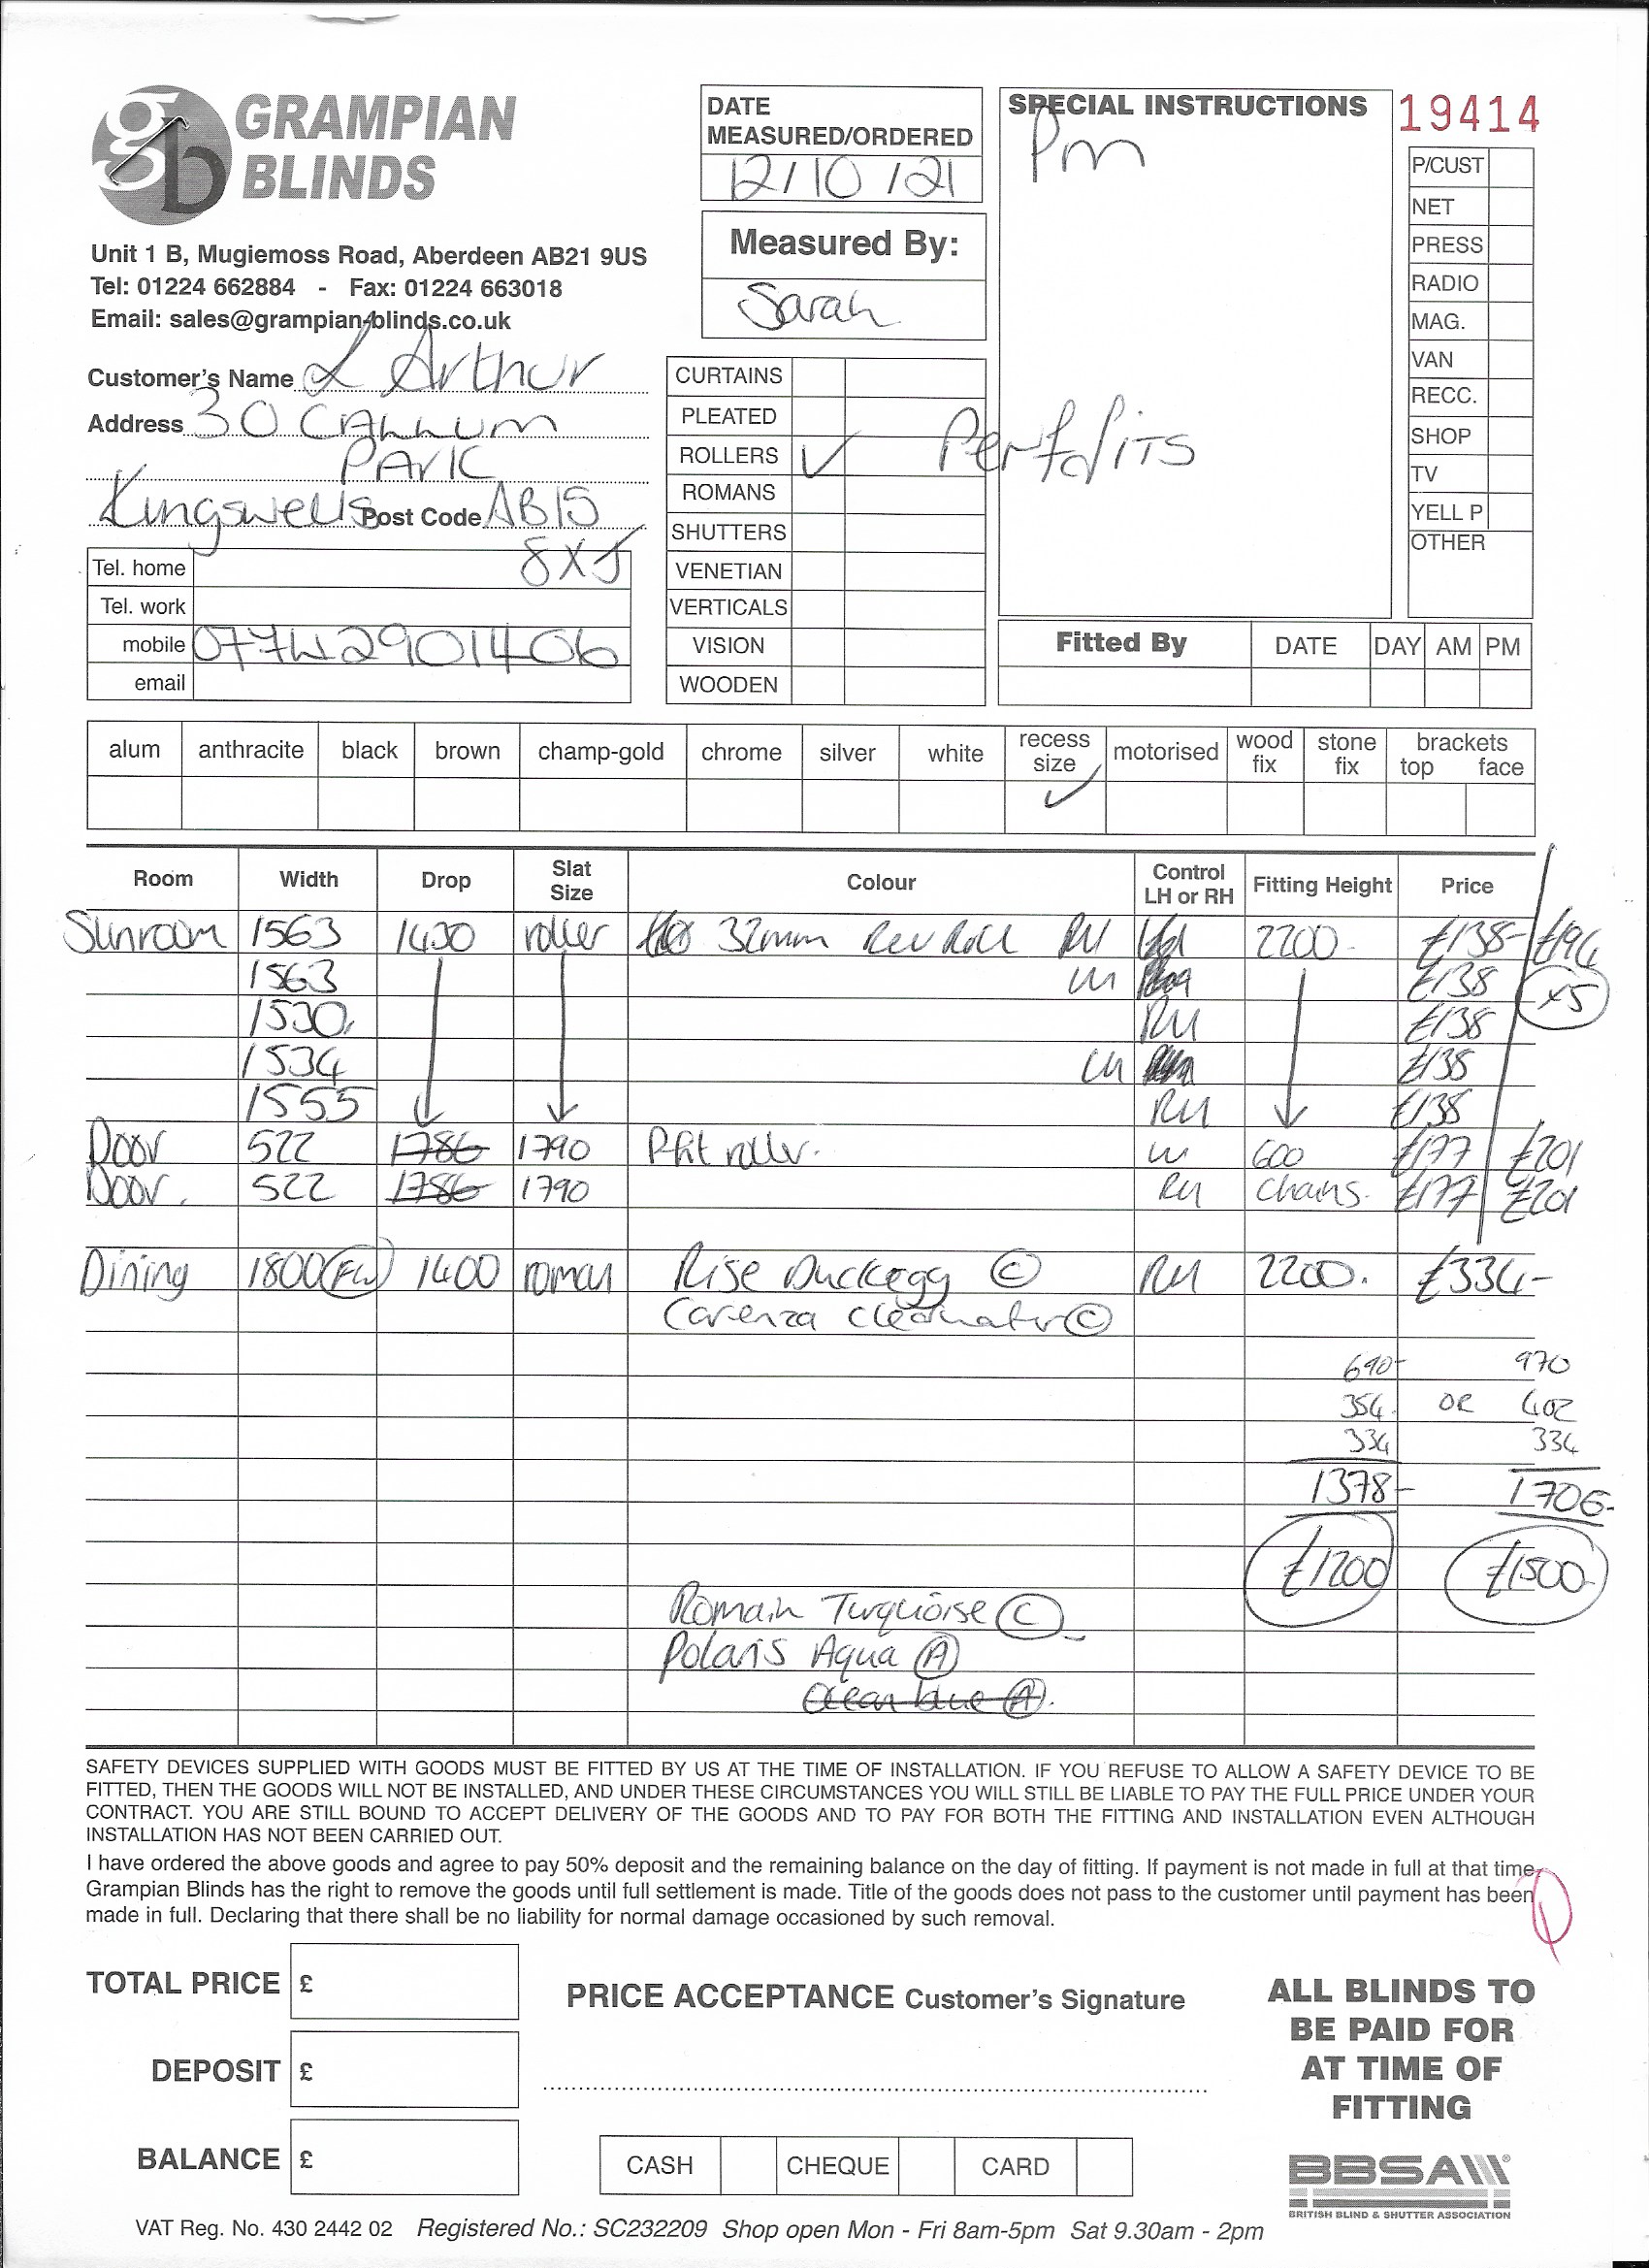 GRAMPIAN
BLINDS
Unit 1 B, Mugiemoss Road, Aberdeen AB21 9US
Tel: 01224 662884 - Fax: 01224 663018
Email: sales@grampian-blinds.co.uk
DATE
MEASURED/ORDERED
12/10/21
Measured By:
Sarah
SPECIAL INSTRUCTIONS
Pm
19414
P/CUST
NET
PRESS
RADIO
MAG.
VAN
RECC.
SHOP
TV
YELL P
OTHER
Customer's Name L Arthur
Address 30 CALLUM
PARK
Kingswells Post Code AB15
8XJ
Tel. home
Tel. work
mobile 07742901406
email
CURTAINS
PLEATED
ROLLERS ✓ Perfdits
ROMANS
SHUTTERS
VENETIAN
VERTICALS
VISION
WOODEN
Fitted By DATE DAY AM PM
alum anthracite black brown champ-gold chrome silver white recess size motorised wood fix stone fix brackets top face
✓
Room Width Drop Slat Size Colour Control LH or RH Fitting Height Price
Sunroom 1563 1430 roller 32mm Rev Roll RH 2200 £138- £194
1563 LH £138 x5
1530 RH £138
1534 LH £138
1555 RH £138
Door 522 1786 1790 Pfit roller. LH 600 £177 £201
Door. 522 1786 1790 RH chains. £177 £201
Dining 1800 (FW) 1400 roman Rise Duckegg © RH 2200. £334-
Carenza Clearwater ©
690- 970
354. OR 402
334 334
1378- 1706-
£1200 £1500-
Romain Turquoise ©
Polaris Aqua Ⓐ
Ocean blue Ⓐ.
SAFETY DEVICES SUPPLIED WITH GOODS MUST BE FITTED BY US AT THE TIME OF INSTALLATION. IF YOU REFUSE TO ALLOW A SAFETY DEVICE TO BE
FITTED, THEN THE GOODS WILL NOT BE INSTALLED, AND UNDER THESE CIRCUMSTANCES YOU WILL STILL BE LIABLE TO PAY THE FULL PRICE UNDER YOUR
CONTRACT. YOU ARE STILL BOUND TO ACCEPT DELIVERY OF THE GOODS AND TO PAY FOR BOTH THE FITTING AND INSTALLATION EVEN ALTHOUGH
INSTALLATION HAS NOT BEEN CARRIED OUT.
I have ordered the above goods and agree to pay 50% deposit and the remaining balance on the day of fitting. If payment is not made in full at that time,
Grampian Blinds has the right to remove the goods until full settlement is made. Title of the goods does not pass to the customer until payment has been
made in full. Declaring that there shall be no liability for normal damage occasioned by such removal.
TOTAL PRICE £
DEPOSIT £
BALANCE £
PRICE ACCEPTANCE Customer's Signature
CASH CHEQUE CARD
ALL BLINDS TO
BE PAID FOR
AT TIME OF
FITTING
BBSA
BRITISH BLIND & SHUTTER ASSOCIATION
VAT Reg. No. 430 2442 02 Registered No.: SC232209 Shop open Mon - Fri 8am-5pm Sat 9.30am - 2pm